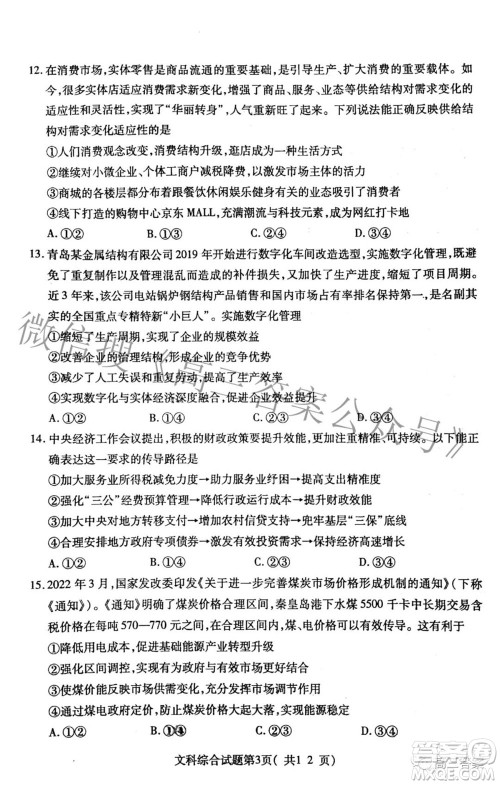 12. 在消费市场，实体零售是商品流通的重要基础，是引导生产、扩大消费的重要载体。如
今，很多实体店适应消费需求新变化，创新商业模式，增强了商品、服务、业态等供给结构的
适应性和灵活性，实现了“华丽转身”，人气重新旺了起来。下列说法能正确反映供给结
构对需求变化适应性的是
①人们消费观念改变，消费结构升级，逛店成为一种生活方式
②继续对小微企业、个体工商户减税降费，以激发实体店活力
③商城的各楼层都有跟餐饮休闲娱乐健身融合的店，吸引消费者
④线下打造的购物中心京东 MALL，充满体验感，成为网红打卡地
A. ①② B. ①③ C. ②④ D. ③④
13. 青岛某金属结构有限公司 2019 年开始进行数字化车间改造选型，实施数字化管理，既避
免了重复制作以及管理混乱而造成的补件损失，又实现了信息共享，缩短了项目周期。
近 3 年来，该公司电站锅炉钢结构产品在国际和国内市场占有率排名保持第一，是名副其
实的全国重点专精特新“小巨人”。实施数字化管理
①缩短了生产周期，实现了企业的规模效益
②改善企业的治理结构，形成企业的竞争优势
③减少了人工失误和重复生产，降低了生产成本
④实现数字化与实体经济深度融合，提升生产效率
A. ①② B. ①③ C. ②④ D. ③④
14. 中央经济工作会议提出，积极的财政政策要提升效能，更加注重精准、可持续。以下能正
确表达这一要求的传导路径是
①加大服务业所得税减免力度→助力服务业纾困→提高支出精准度
②强化“三公”经费预算管理→降低行政运行成本→提升财政效能
③加大中央对地方转移支付→增加农村信贷支持→兜牢基层“三保”底线
④合理安排地方专项债规模→扩大政府有效投资→增强财政可持续性
A. ①② B. ①③ C. ②④ D. ③④
15. 2022 年 3 月，国家发改委印发《关于进一步完善煤炭市场价格形成机制的通知》（下称
《通知》）。《通知》明确了煤炭价格合理区间，秦皇岛港下水煤 5500 千卡中长期交易含
税价格在每吨 570—770 元之间较为合理，煤、电价格可以有效传导。这有利于
①降低用电成本，促进基础能源产业高质量发展
②强化区间调控，实现有效市场和有为政府更好结合
③使煤价能反映市场变化，推动资源高效配置
④通过煤电政府定价，防止煤价大起大落
A. ①② B. ①④ C. ②③ D. ③④
文科综合试题第3页( 共1 2 页)
微信搜《高三答案公众号》